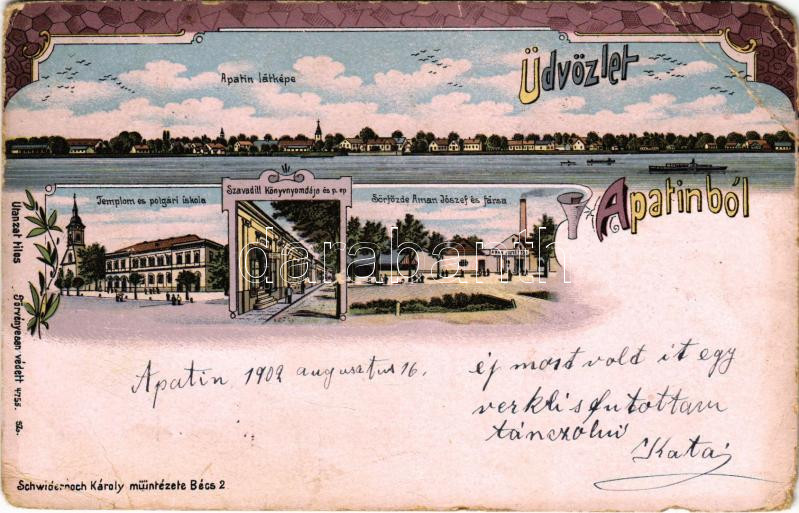 Apatin látképe
Üdvözlet
Apatinból
Templom és polgári iskola
Szavadill Könyvnyomdája és p. ep
Sörfőzde Aman József és társa
Utánzat tilos Törvényesen védett 4755. sz.
Apatin 1902 augusztus 16.
éj most vold it egy
verkli s futottam
tánczólni
Kata
Schwidernoch Károly műintézete Bécs 2
darabanth